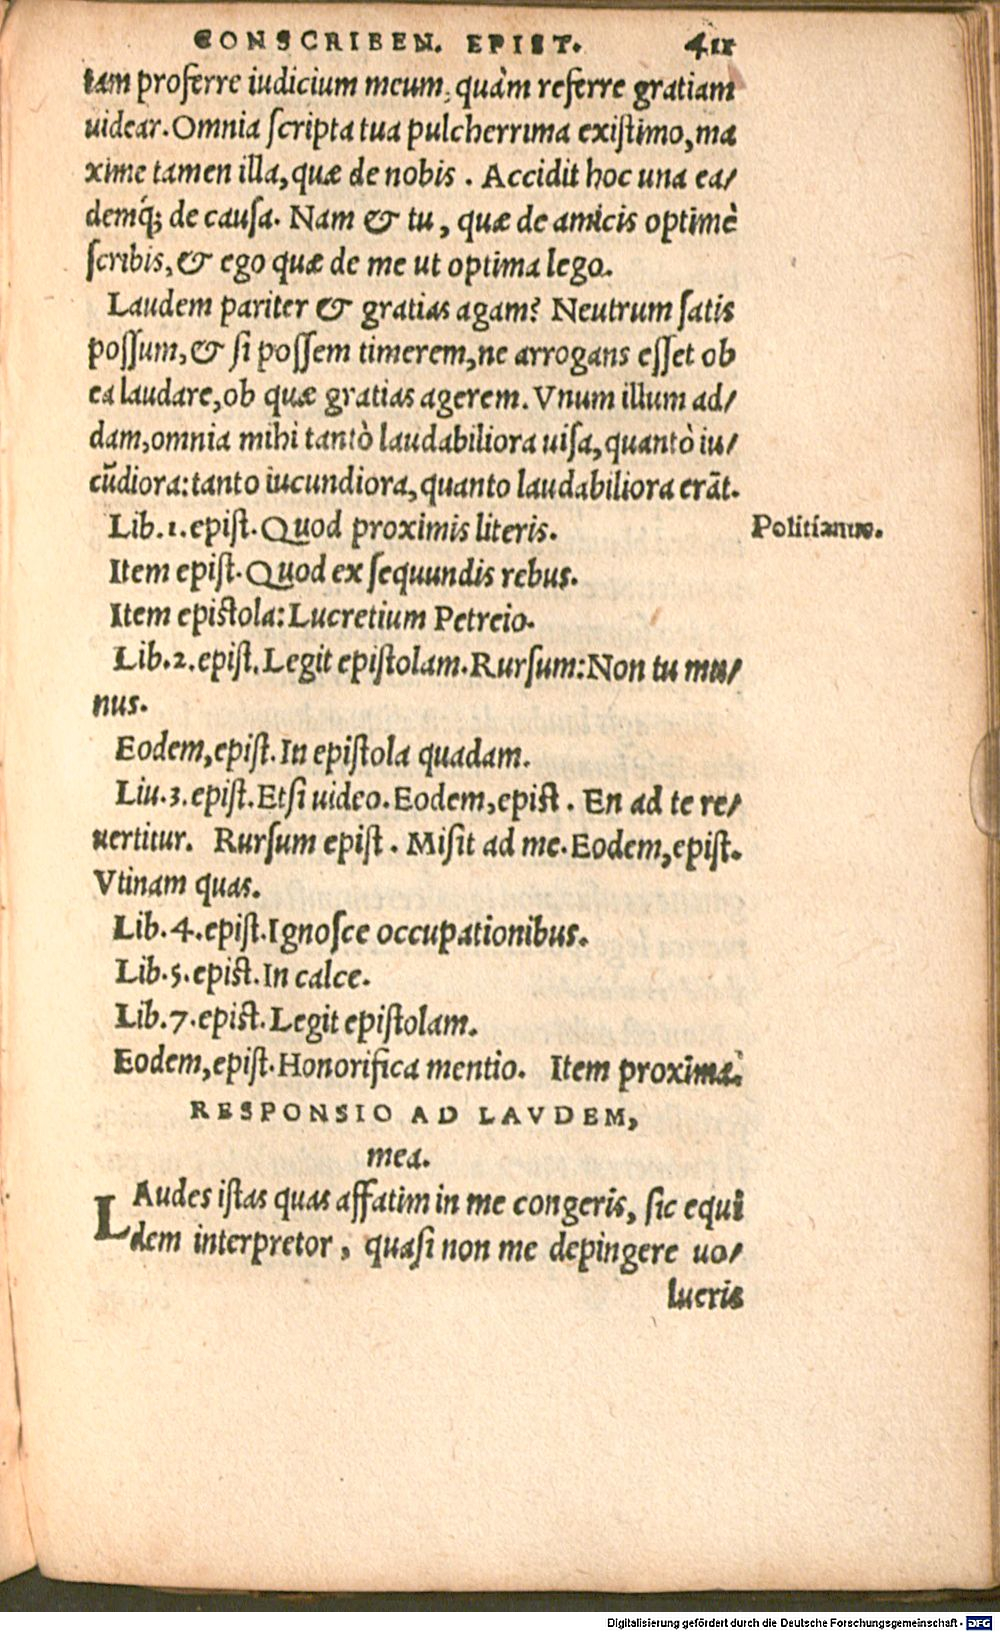 CONSCRIBEN. EPIST. 411
tam proferre iudicium meum, quàm referre gratiam
uidear. Omnia scripta tua pulcherrima existimo, ma
xime tamen illa, quæ de nobis. Accidit hoc una ea/
demq́; de causa. Nam & tu, quæ de amicis optimè
scribis, & ego quæ de me ut optima lego.
Laudem pariter & gratias agam? Neutrum satis
possum, & si possem timerem, ne arrogans esset ob
ea laudare, ob quæ gratias agerem. Vnum illum ad/
dam, omnia mihi tantò laudabiliora uisa, quantò iu/
cũdiora: tanto iucundiora, quanto laudabiliora erãt.
Lib. 1. epist. Quod proximis literis. Politianus.
Item epist. Quod ex sequundis rebus.
Item epistola: Lucretium Petreio.
Lib. 2. epist. Legit epistolam. Rursum: Non tu mu/
nus.
Eodem, epist. In epistola quadam.
Liu. 3. epist. Etsi uideo. Eodem, epist. En ad te re/
uertitur. Rursum epist. Misit ad me. Eodem, epist.
Vtinam quas.
Lib. 4. epist. Ignosce occupationibus.
Lib. 5. epist. In calce.
Lib. 7. epist. Legit epistolam.
Eodem, epist. Honorifica mentio. Item proxima.
RESPONSIO AD LAVDEM,
mea.
LAudes istas quas affatim in me congeris, sic equi
dem interpretor, quasi non me depingere uo/
lueris
Digitalisierung gefördert durch die Deutsche Forschungsgemeinschaft - DFG